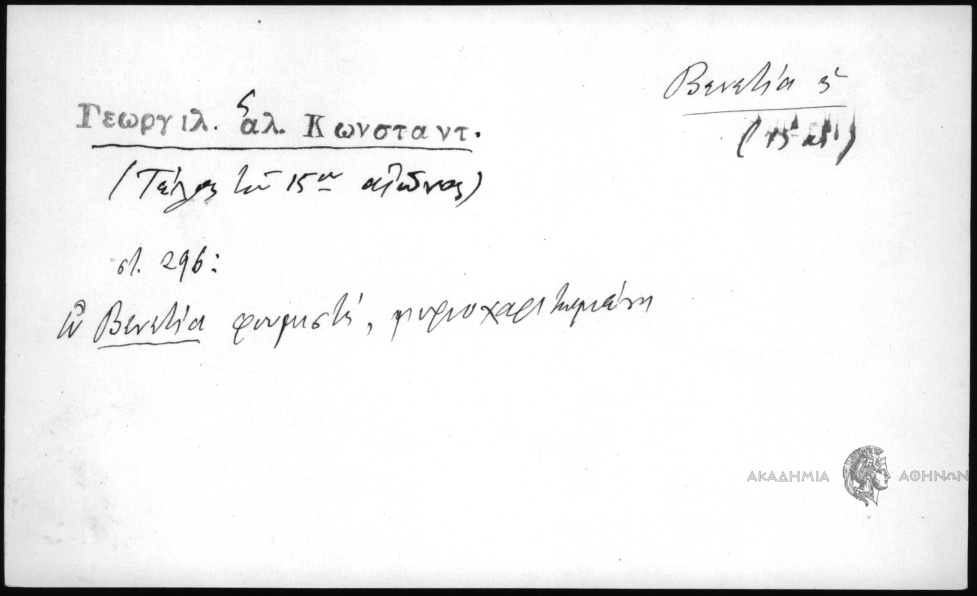 Βενετία ἡ
(15 αι)
Γεωργιλ. ἅλ. Κωνσταντ.
(Τέλος τοῦ 15ου αἰῶνος)
στ. 296:
ὦ Βενετία φουμιστή, μυριοχαριτωμένη
ΑΚΑΔΗΜΙΑ ΑΘΗΝΩΝ